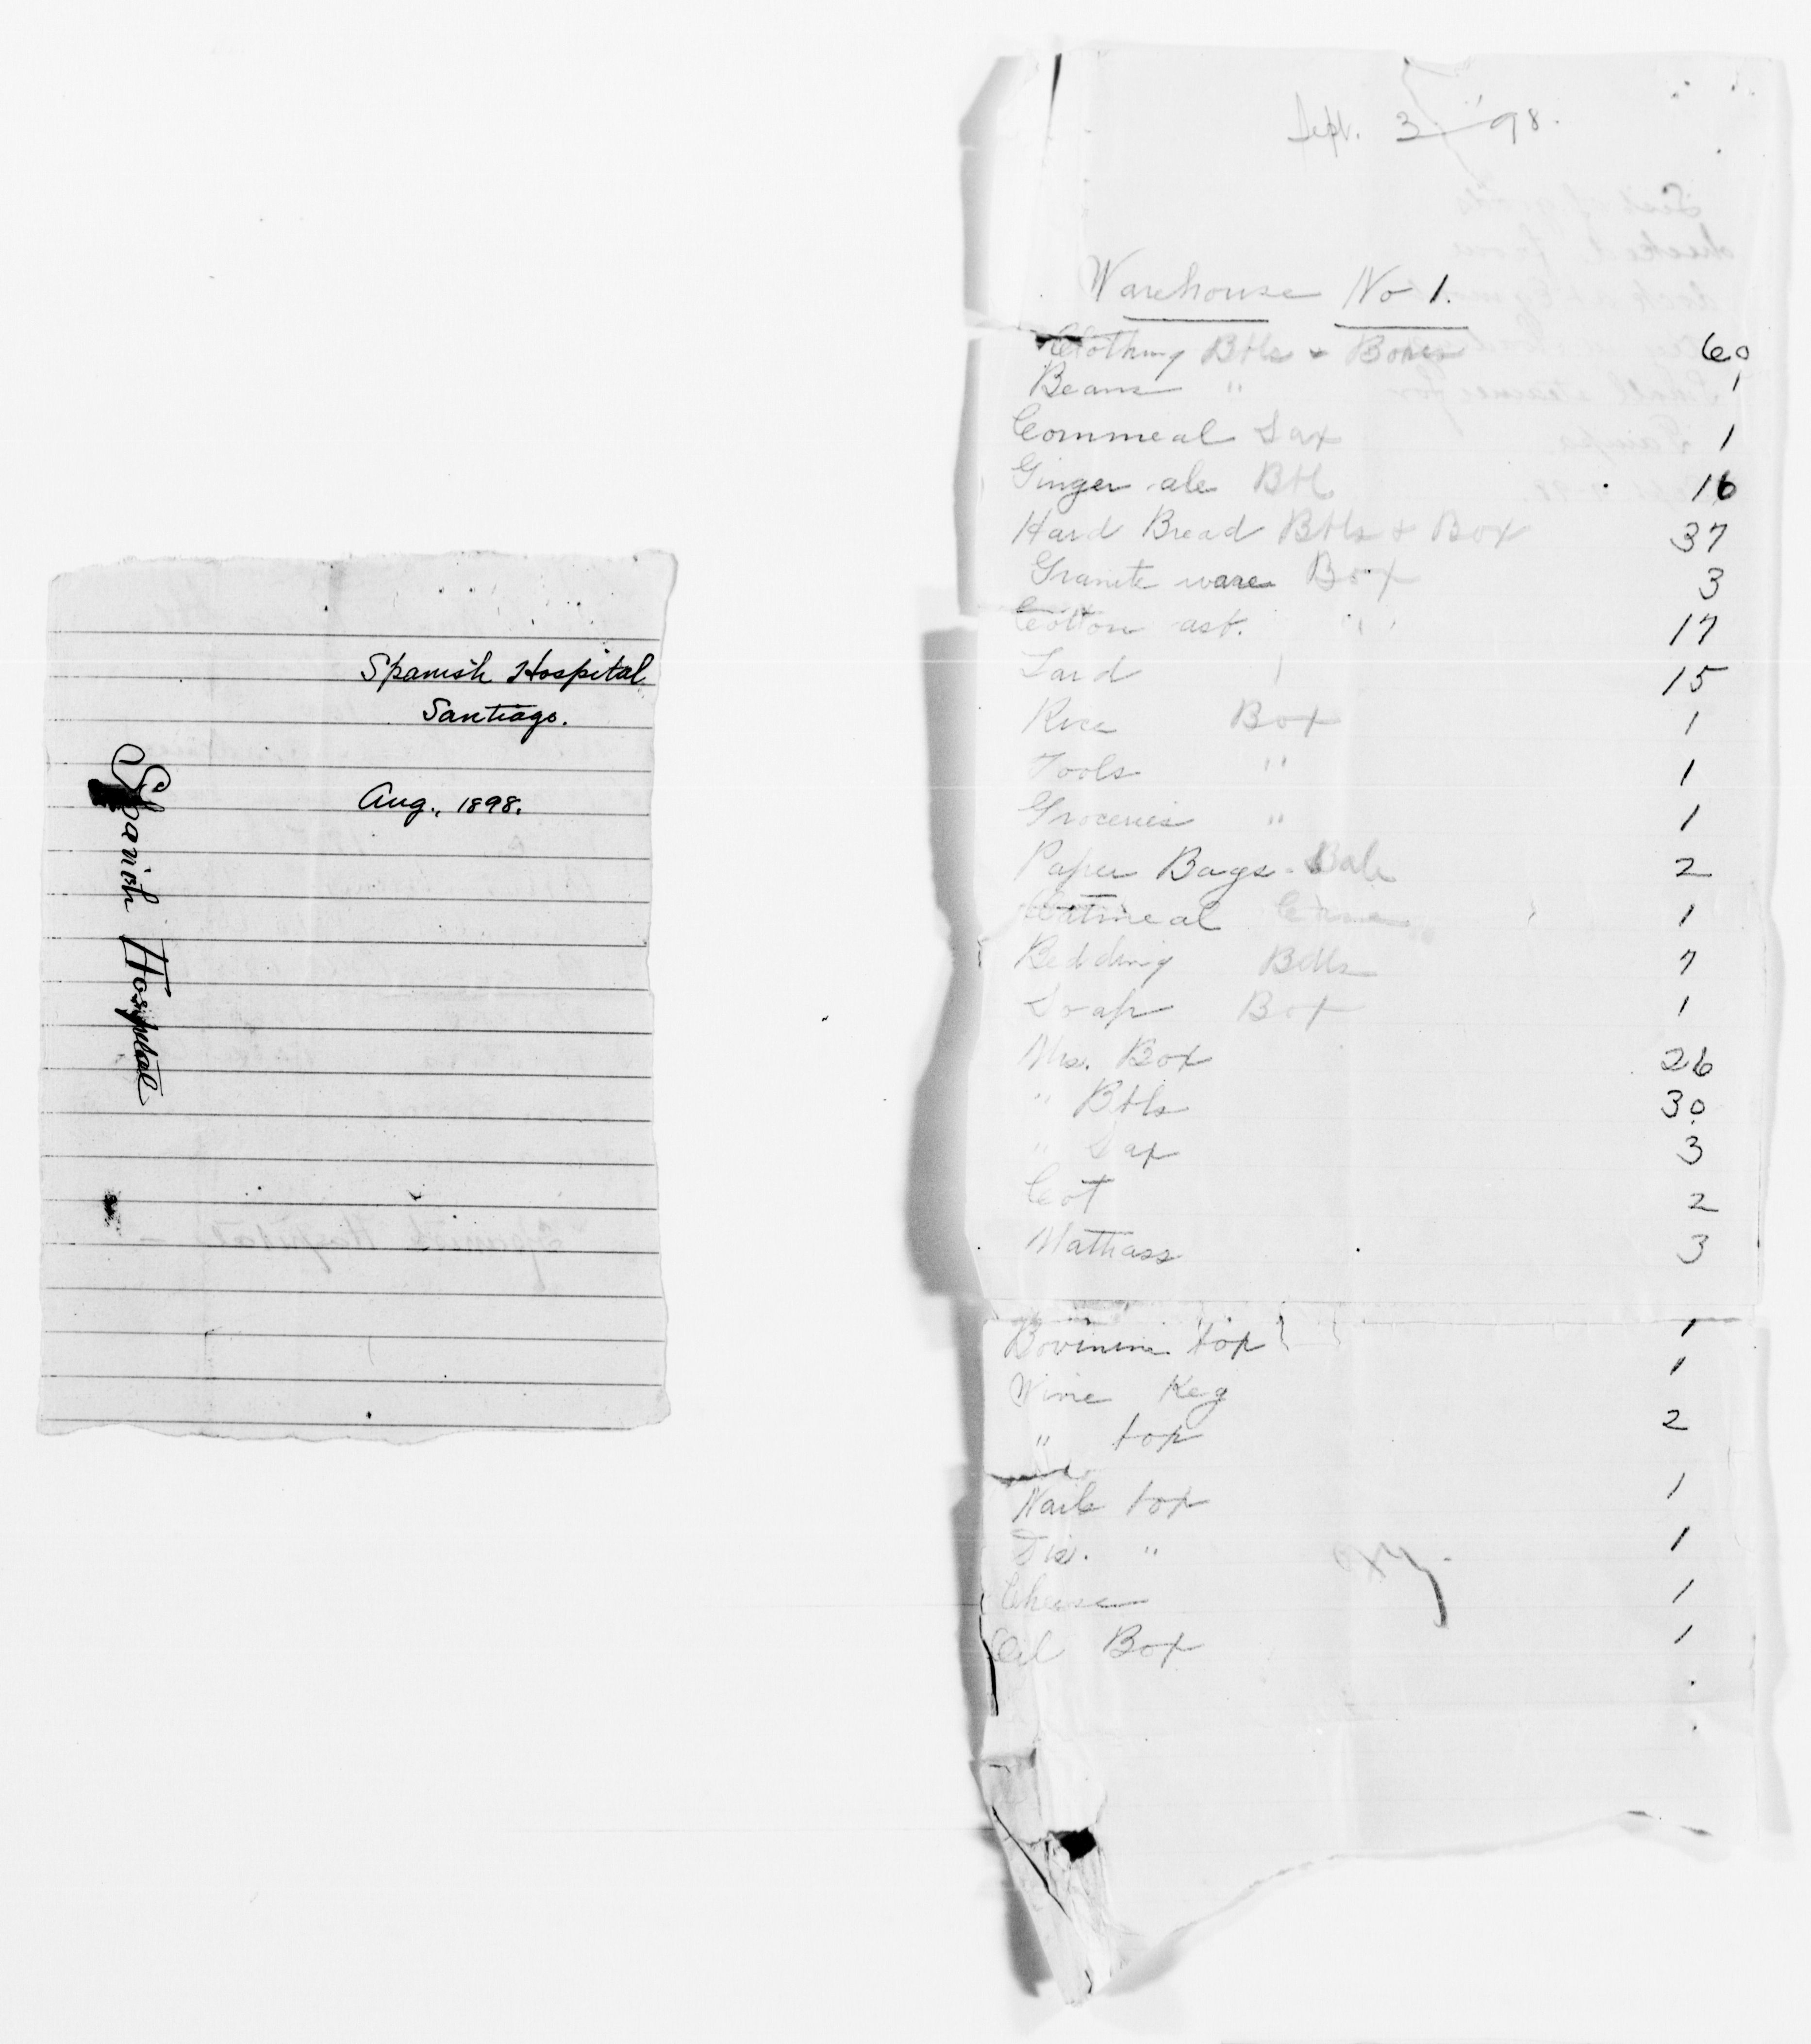 Spanish Hospital
Santiago.
Aug., 1898.
Spanish Hospital
Sept. 3 / 98.
Warehouse No 1.
Clothing Bbls & Boxes 60
Beans " 1
Cornmeal Sax 1
Ginger ale Bbl 16
Hard Bread Bbls & Box 37
Granite ware Box 3
Cotton ast. " 17
Lard 15
Rice Box 1
Tools " 1
Groceries " 1
Paper Bags - Bale 2
Oatmeal 1
Bedding Bdls 7
Soap Box 1
Mis. Box 26
" Bbls 30
" Sax 3
Cot 2
Mattrass 3
Bovinine box 1
Wine Keg 1
" box 2
Nails box 1
Dis. " 1
Cheese 1
Oil Box 1